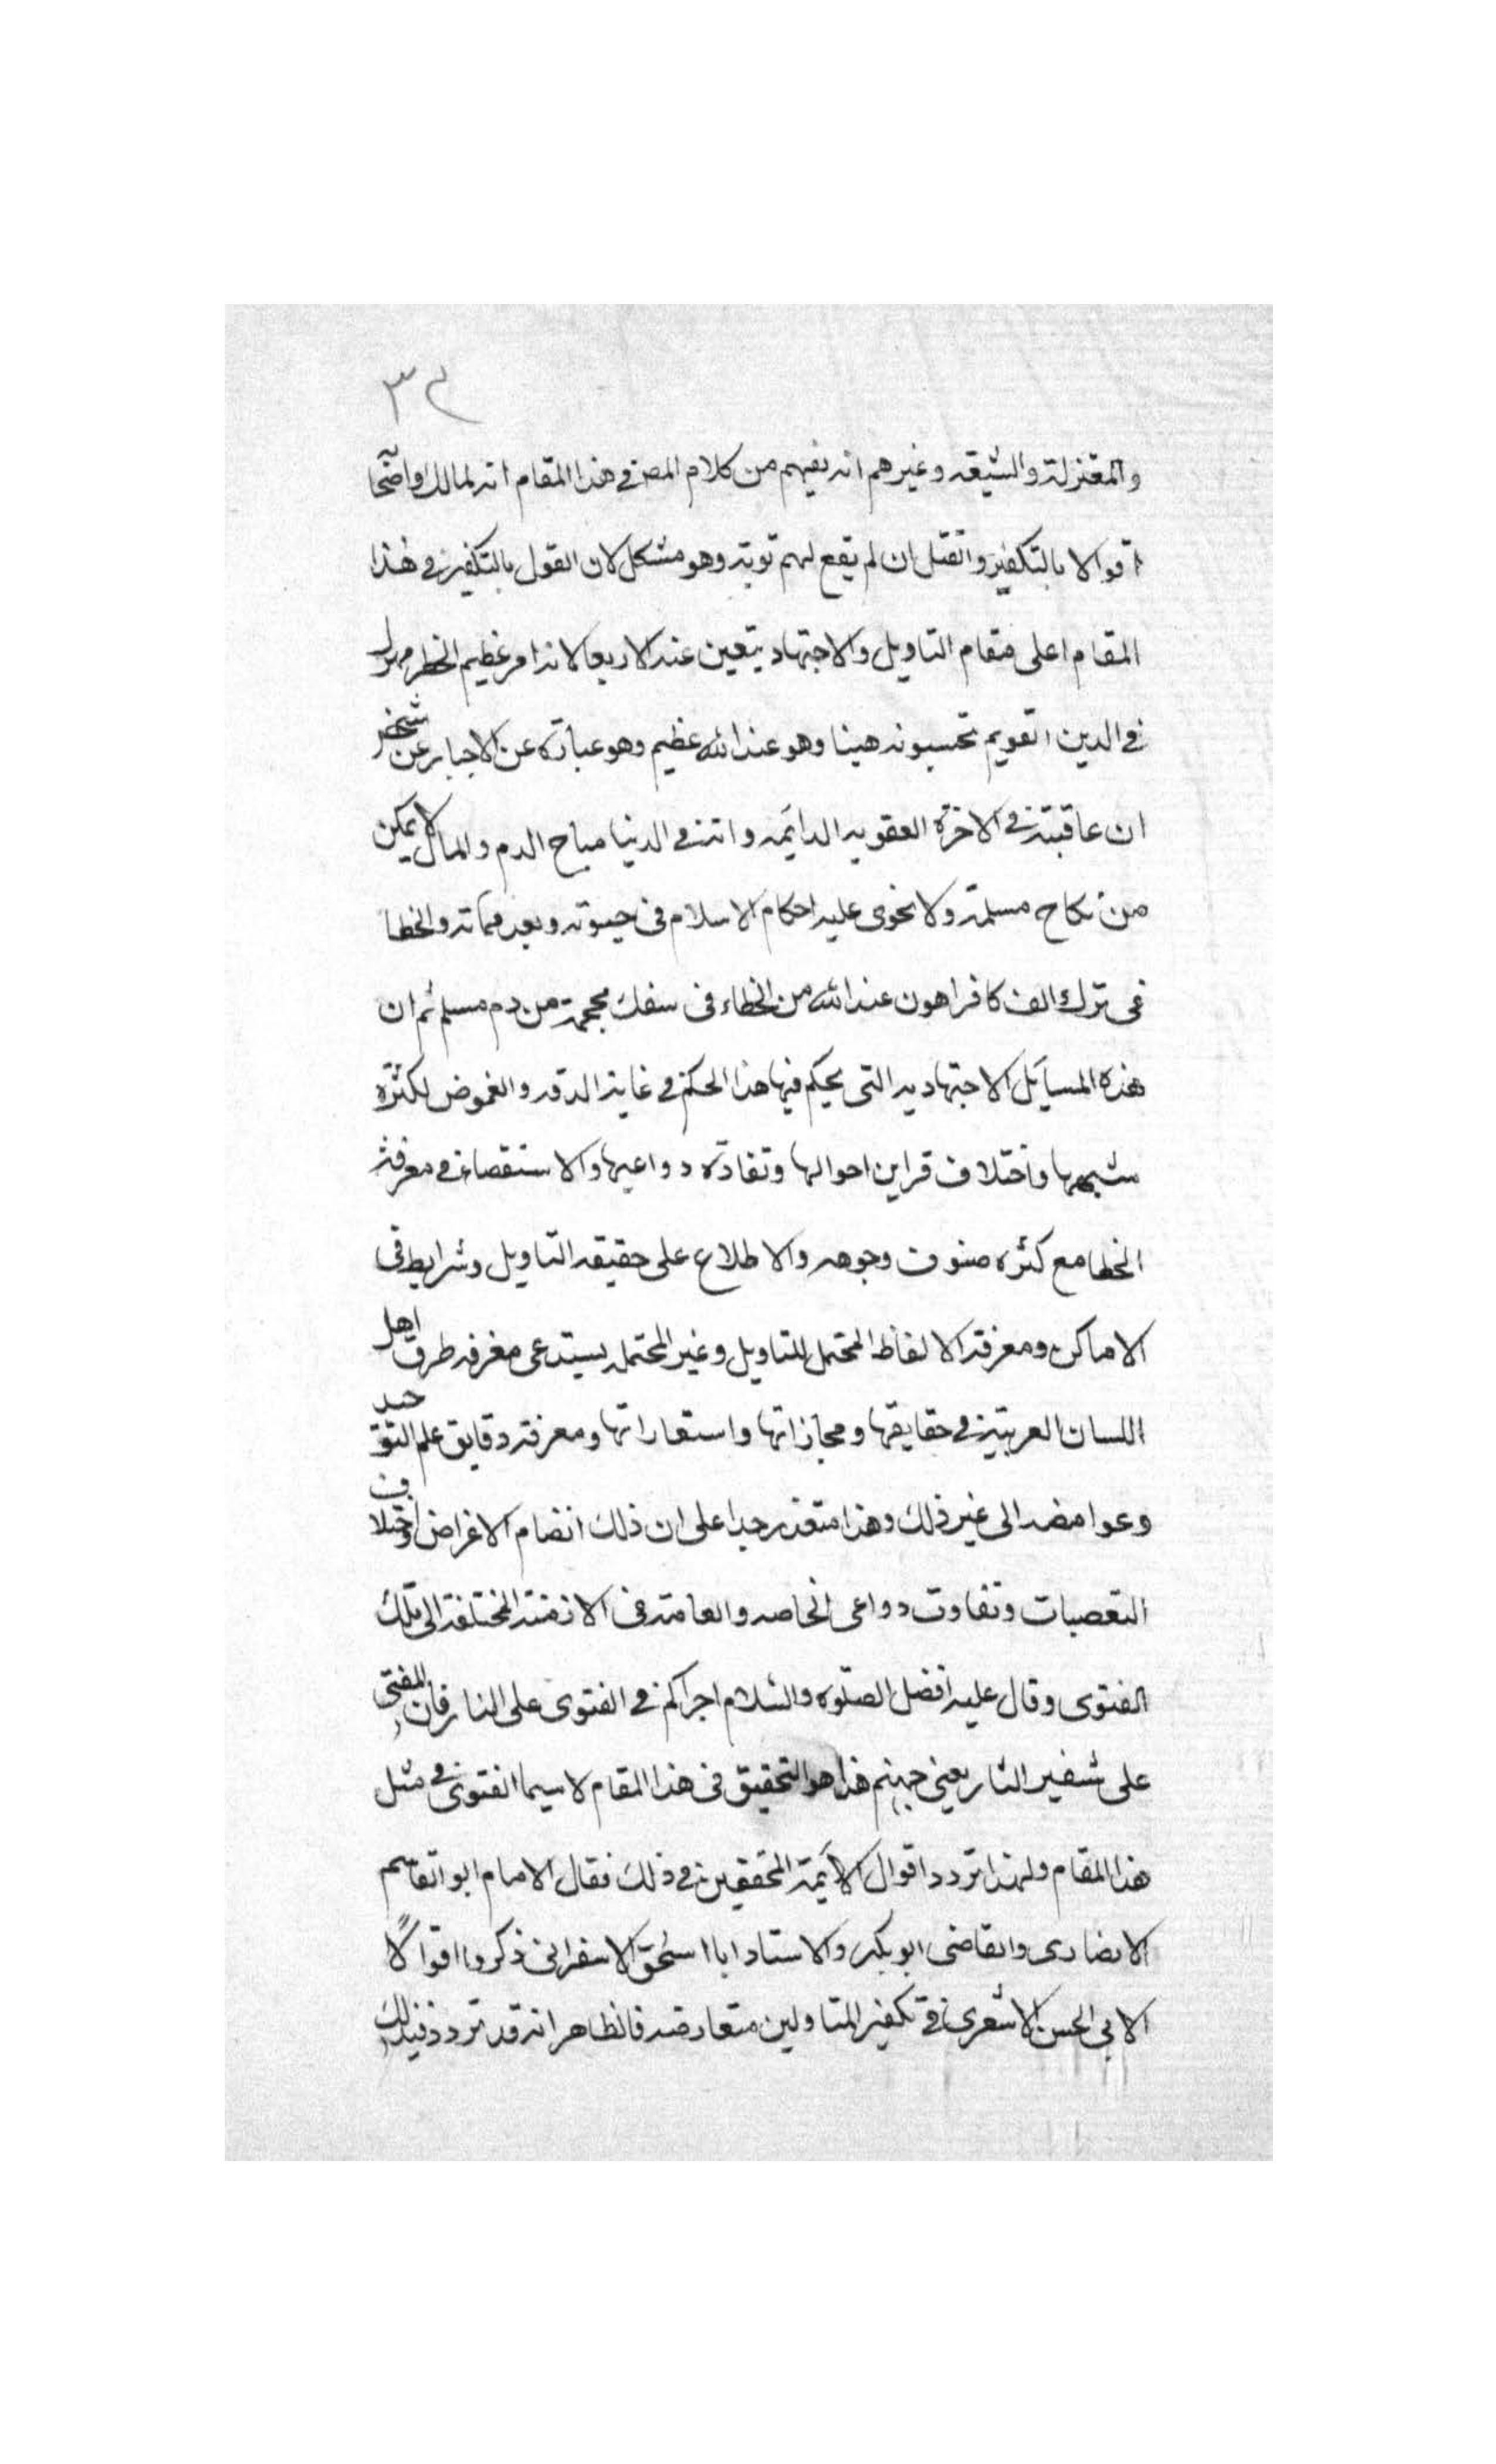 ٣٢
والمعتزلة والشيعة وغيرهم انه يفهم من كلام المص في هذا المقام انه لمالك واصحا
اقوالا بالتكفير والقتل ان لم يقع لهم توبة وهو مشكل لان القول بالتكفير في هذا
المقام اعلى مقام التاويل والاجتهاد يتعين عند الاربعا لانه امر عظيم الخطر مهول
في الدين القويم تحسبونه هينا وهو عند الله عظيم وهو عبارة عن الاخبار عن شخص
ان عاقبته في الاخرة العقوبه الدايمه وانه في الدنيا مباح الدم والمال لا يمكن
من نكاح مسلمة ولا يجرى عليه احكام الاسلام فى حيوته وبعد مماته والخطا
فى ترك الف كافر اهون عند الله من الخطاء فى سفك محجمة من دم مسلم ثم ان
هذه المسايل الاجتهاديه التى يحكم فيها هذا الحكم في غاية الدقه والغموض لكثرة
شبهها واختلاف قراين احوالها وتفاوت دواعيها والاستقصاء في معرفة
الخطا مع كثرة صنوف وجوهه والاطلاع على حقيقه التاويل وشرايط فى
الاماكن ومعرفة الالفاظ المحتمل للتاويل وغير المحتمله يستدعى معرفه طرق اهل
اللسان العربية في حقايقها ومجازاتها واستعاراتها ومعرفة دقايق علم التوحيد
وعوامضه الى غير ذلك وهذا متعذر جدا على ان ذلك انضام الاغراض واختلاف
التعصبات وتفاوت دواعى الخاصه والعامة فى الازمنة المختلفة الى تلك
الفتوى وقال عليه افضل الصلوة والسلام اجراكم في الفتوى على النار فان المفتى
على شفير النار يعنى جهنم هذا هو التحقيق فى هذا المقام لا سيما الفتوى في مثل
هذا المقام ولهذا تردد اقوال الايمة المحققين في ذلك فقال الامام ابو القاسم
الانصارى والقاضى ابو بكر والاستاد ابا اسحق الاسفراينى ذكروا اقوالًا
لابى الحسن الاشعرى في تكفير المتاولين متعارضه فالظاهر انه قد تردد فى ذلك